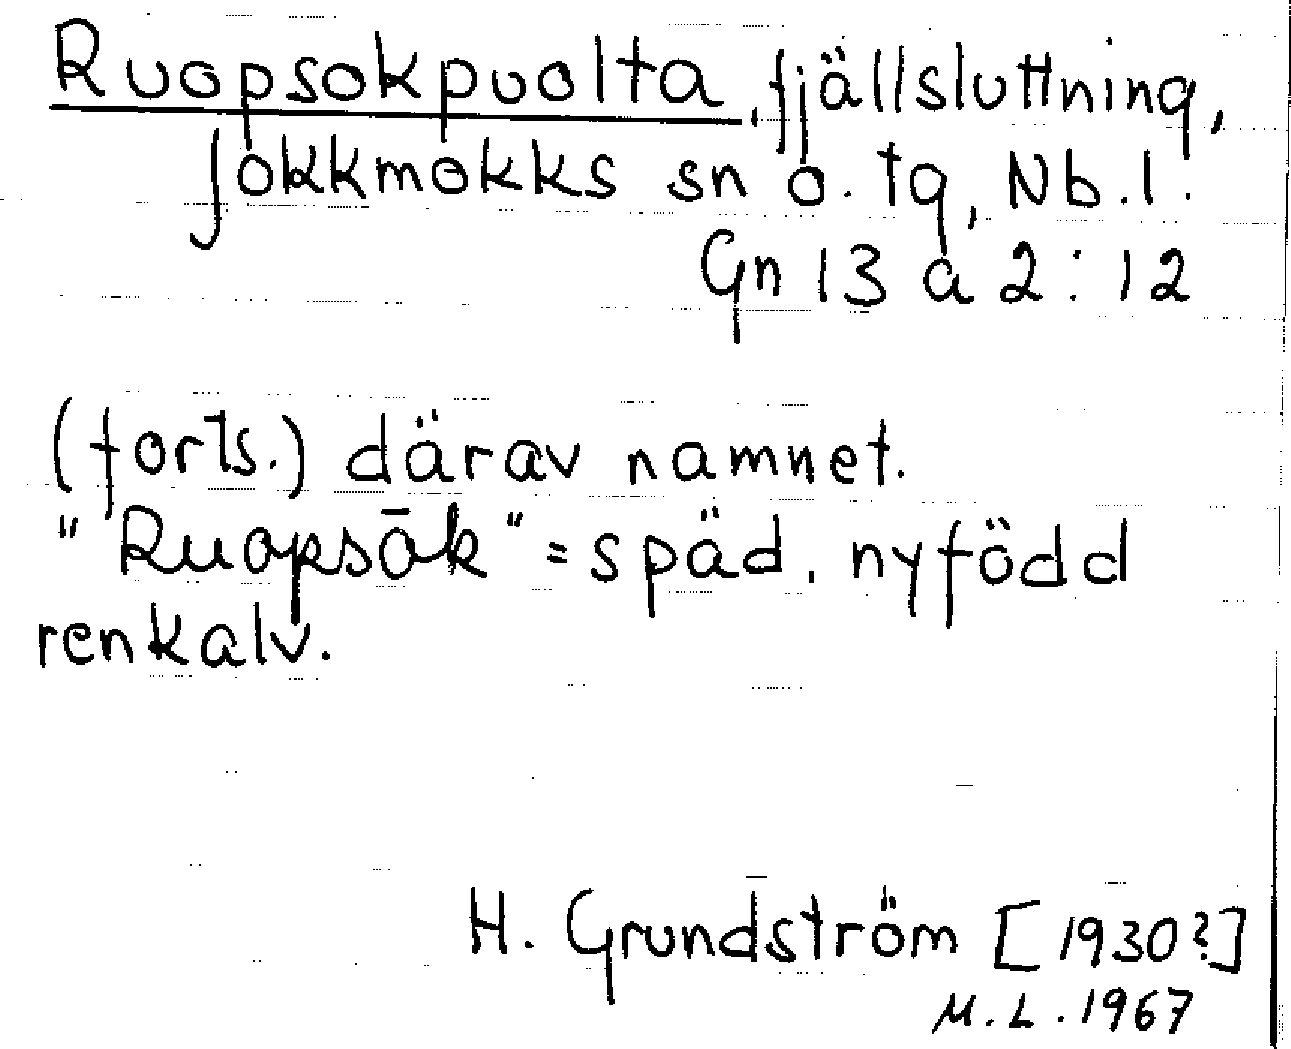 Ruopsokpuolta, fjällsluttning,
Jokkmokks sn o. tg, Nb.l.
Gn 13 a 2:12
(forts.) därav namnet.
"Ruopsōk" = späd, nyfödd
renkalv.
H. Grundström [1930?]
M.L. 1967